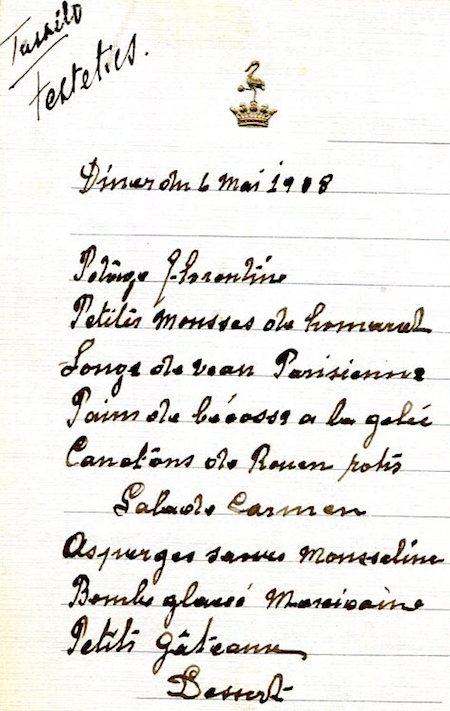 Tassilo
Festetics.
Dîner du 6 Mai 1908
Potâge florentine
Petits mousses de homard
Longe de veau Parisienne
Pain de bécasse a la gelée
Canetons de Rouen rotis
Salade Carmen
Asperges sauce Mousseline
Bombe glacée Mexicaine
Petits gâteaux
Dessert